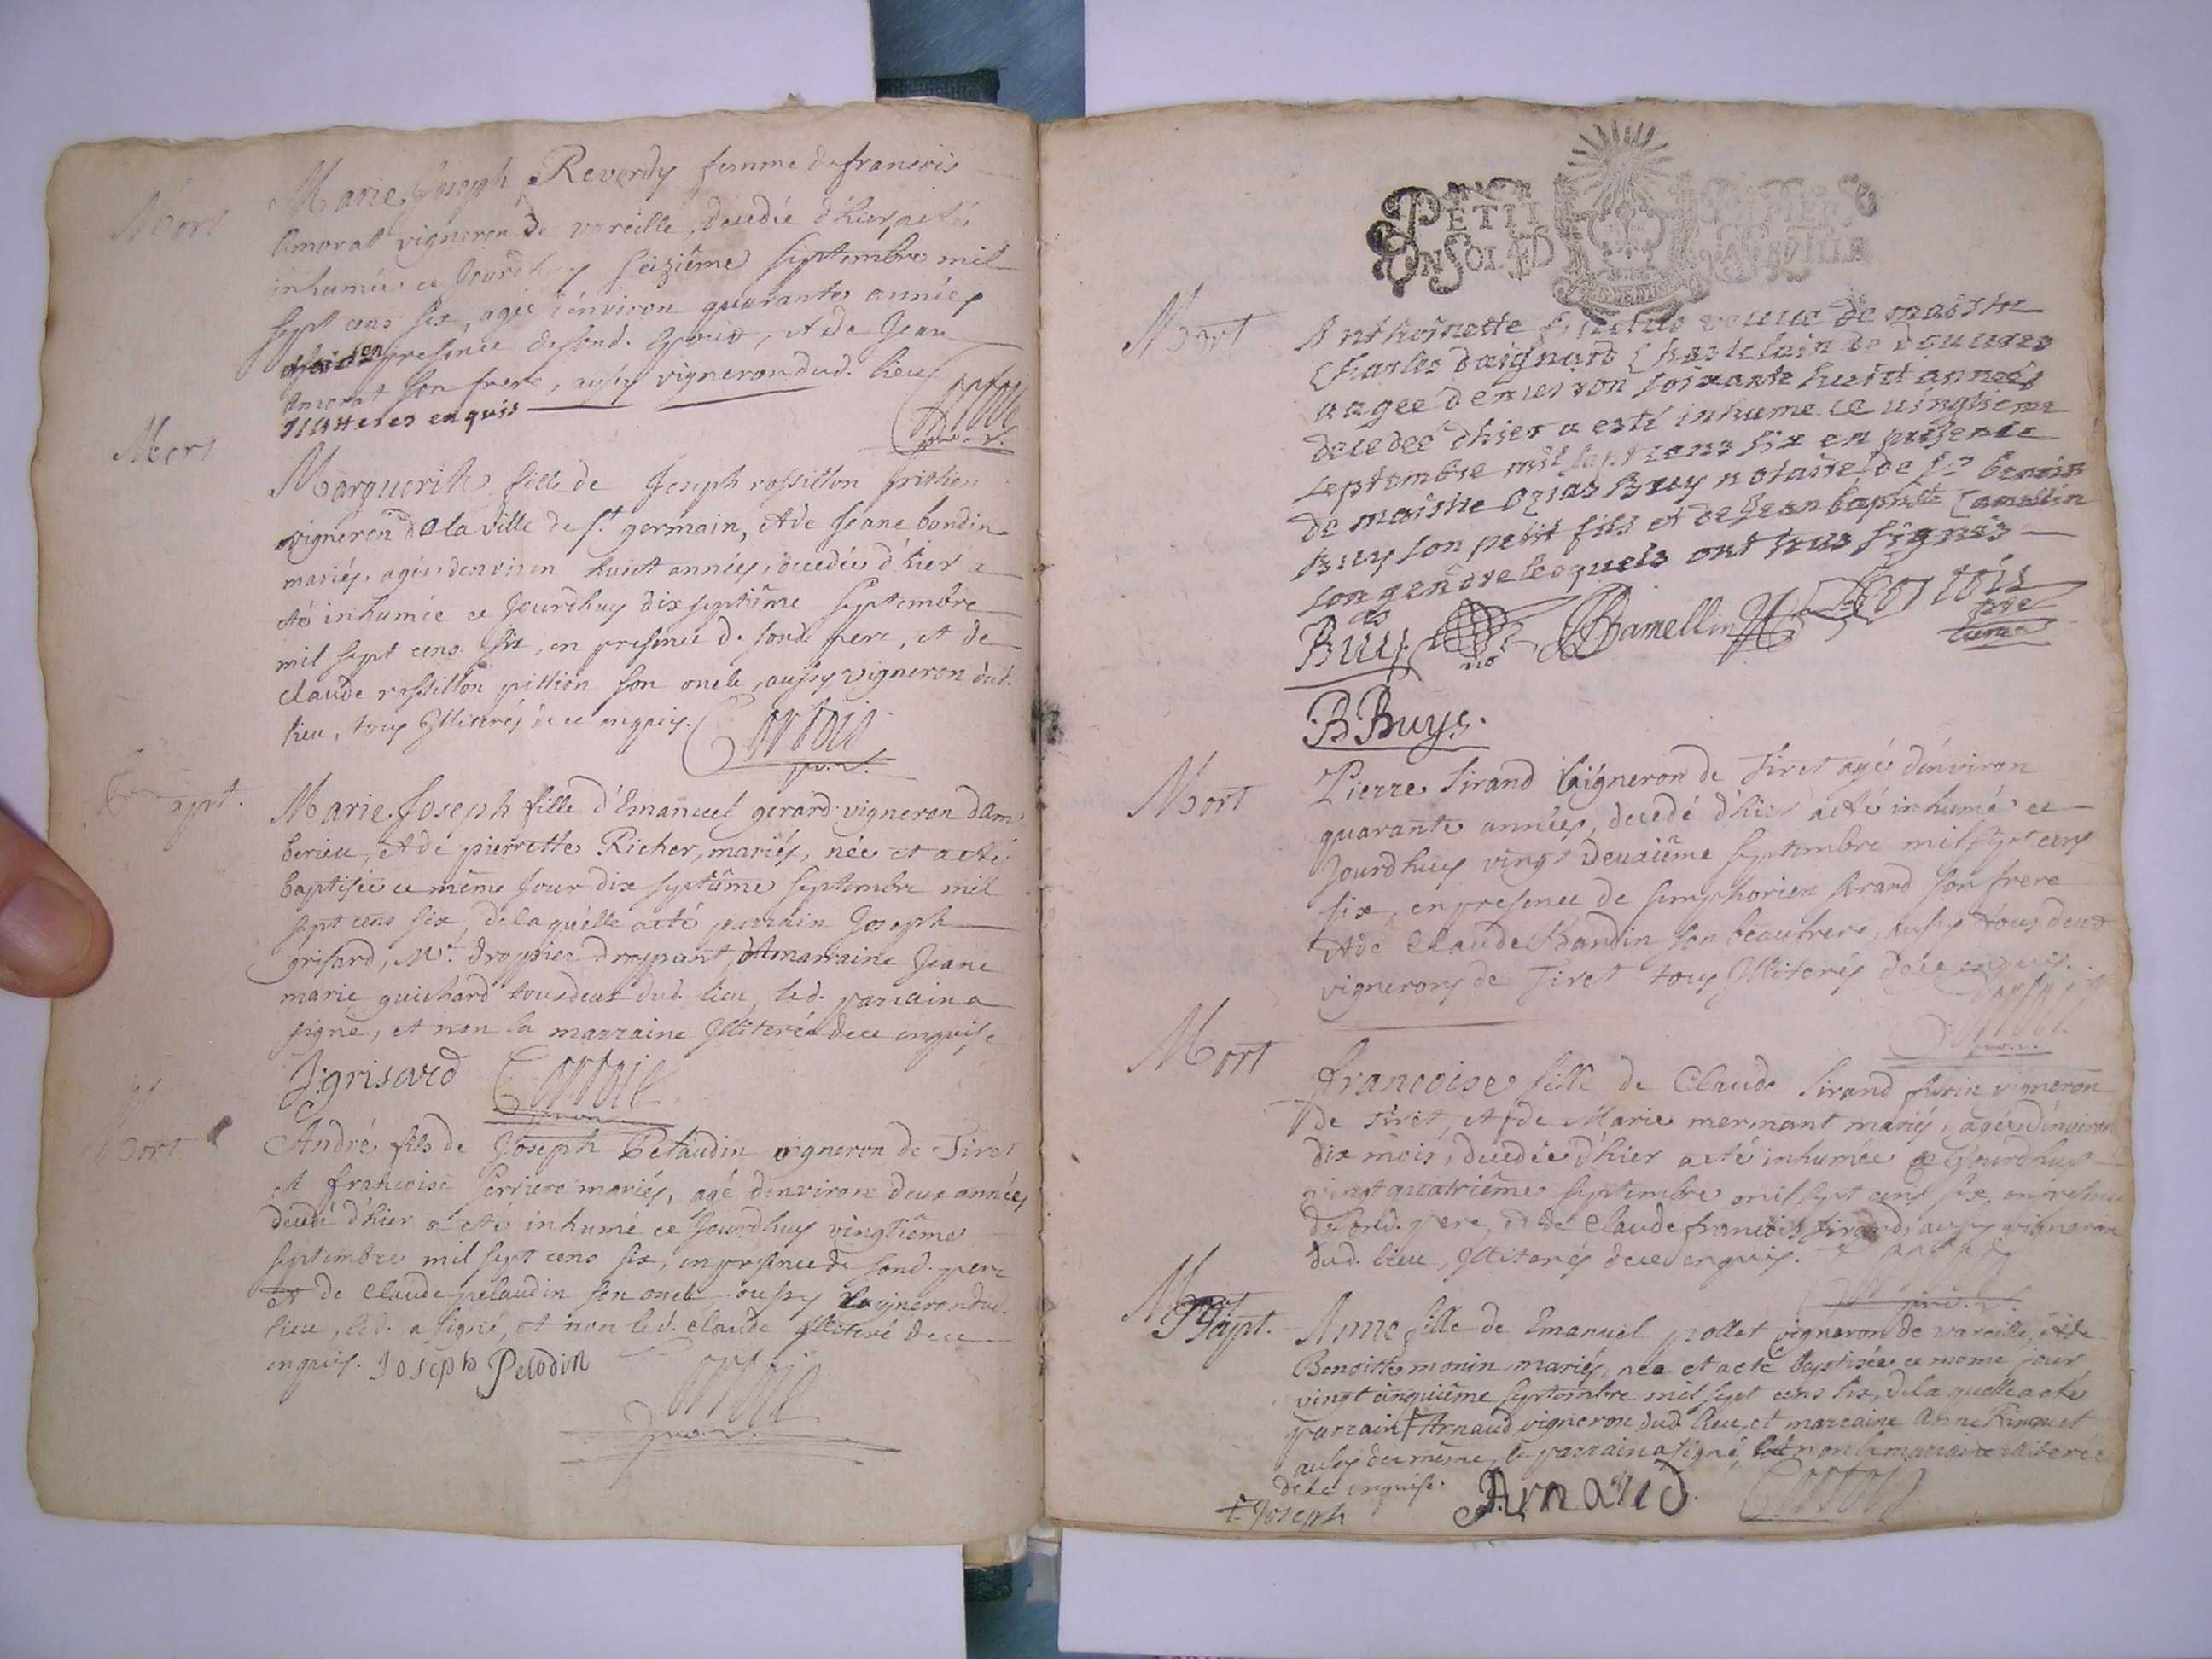 Mort
Marie Joseph Reverdy femme de francois
Amorat vigneron de vareille, decedée d'hier, a eté
inhumée ce Jourdhuy seizième septembre mil
sept cens six, agée d'environ quarante années
presence de sond. Epoux, et de Jean
Amorat son frere, aussy vigneron dud. lieu
illitteres enquis
Cortois
Mort
Marguerite fille de Joseph rossillon
vigneron de la ville de st. germain, et de Jeane bondin
mariés, agée denviron huict années, decedée d'hier a
eté inhumée ce Jourdhuy dix septième septembre
mil sept cens six, en presence de sond. pere, et de
claude rossillon pittion son oncle, aussy vigneron dud.
lieu, tous Illiterés de ce enquis. Cortois
Bapt.
Marie Joseph fille d'Emanuel gerard vigneron dam
berieu, et de pierrette Richer, mariés, née et a eté
baptisée ce même Jour dix septième septembre mil
sept cens six, de laquelle a eté parrain Joseph
grisard, Mr. drappier drapant, et marraine Jeane
marie guichard tous deux dud. lieu, led. parrain a
signé, et non la marraine Illiterée de ce enquise
J. grisard Cortois
Mort
André fils de Joseph Pelaudin vigneron de Tiret
et francoise perriere mariés, agé denviron deux années
decedé d'hier a eté inhumé ce Jourdhuy vingtième
septembre mil sept cens six, en presence de sond. pere
et de claude pelaudin son oncle, aussy vigneron dud.
lieu, led. a signé, et non led. claude Illiteré de ce
enquis. Joseph Pelodin
Cortois
PETIT PAPIER
EN SOL LA FEUILLE
Mort
Anthoinette veuve de maistre
Charles daignard Chastelain de douures
aagee denuiron soixante huict années
decedeé dhier a esté inhume ce uingtieme
septembre mil sept cens six en presence
de maistre ozias Buy notaire de st benoist
Buy son petit fils et de Jean baptiste Camellin
son gendre lesquels ont tous signés
Buy Bamellin Cortois
curé
B Buys.
Mort
Pierre Sirand vigneron de Tiret agé d'environ
quarante années, decedé d'hier a eté inhumé ce
Jourdhuy vingt deuxième septembre mil sept cens
six, en presence de simphorien sirand son frere
et de Claude Bandin son beaufrere, aussy tous deux
vignerons de Tiret tous Illiterés de ce enquis.
Cortois
Mort
francoise fille de Claude Sirand furin vigneron
de Tiret, et de Marie mermant mariés, agée d'environ
dix mois, decedée d'hier a eté inhumée ce Jourdhuy
vingt quatrième septembre mil sept cens six, en presence
de sond. pere, et de claude francois sirand, aussy vigneron
dud. lieu, Illiterés de ce enquis. Cortois
Bapt.
Anne fille de Emanuel pollet vigneron de vareille, et de
Benoitte monin mariés, née et a eté baptisée ce meme jour
vingt cinquième septembre mil sept cens six, de laquelle a eté
parrain + Arnaud vigneron dud. lieu, et marraine Anne
aussy du même, le parrain a signé, et non la marraine illiterée
de ce enquise. Arnaud. Cortois
+ Joseph